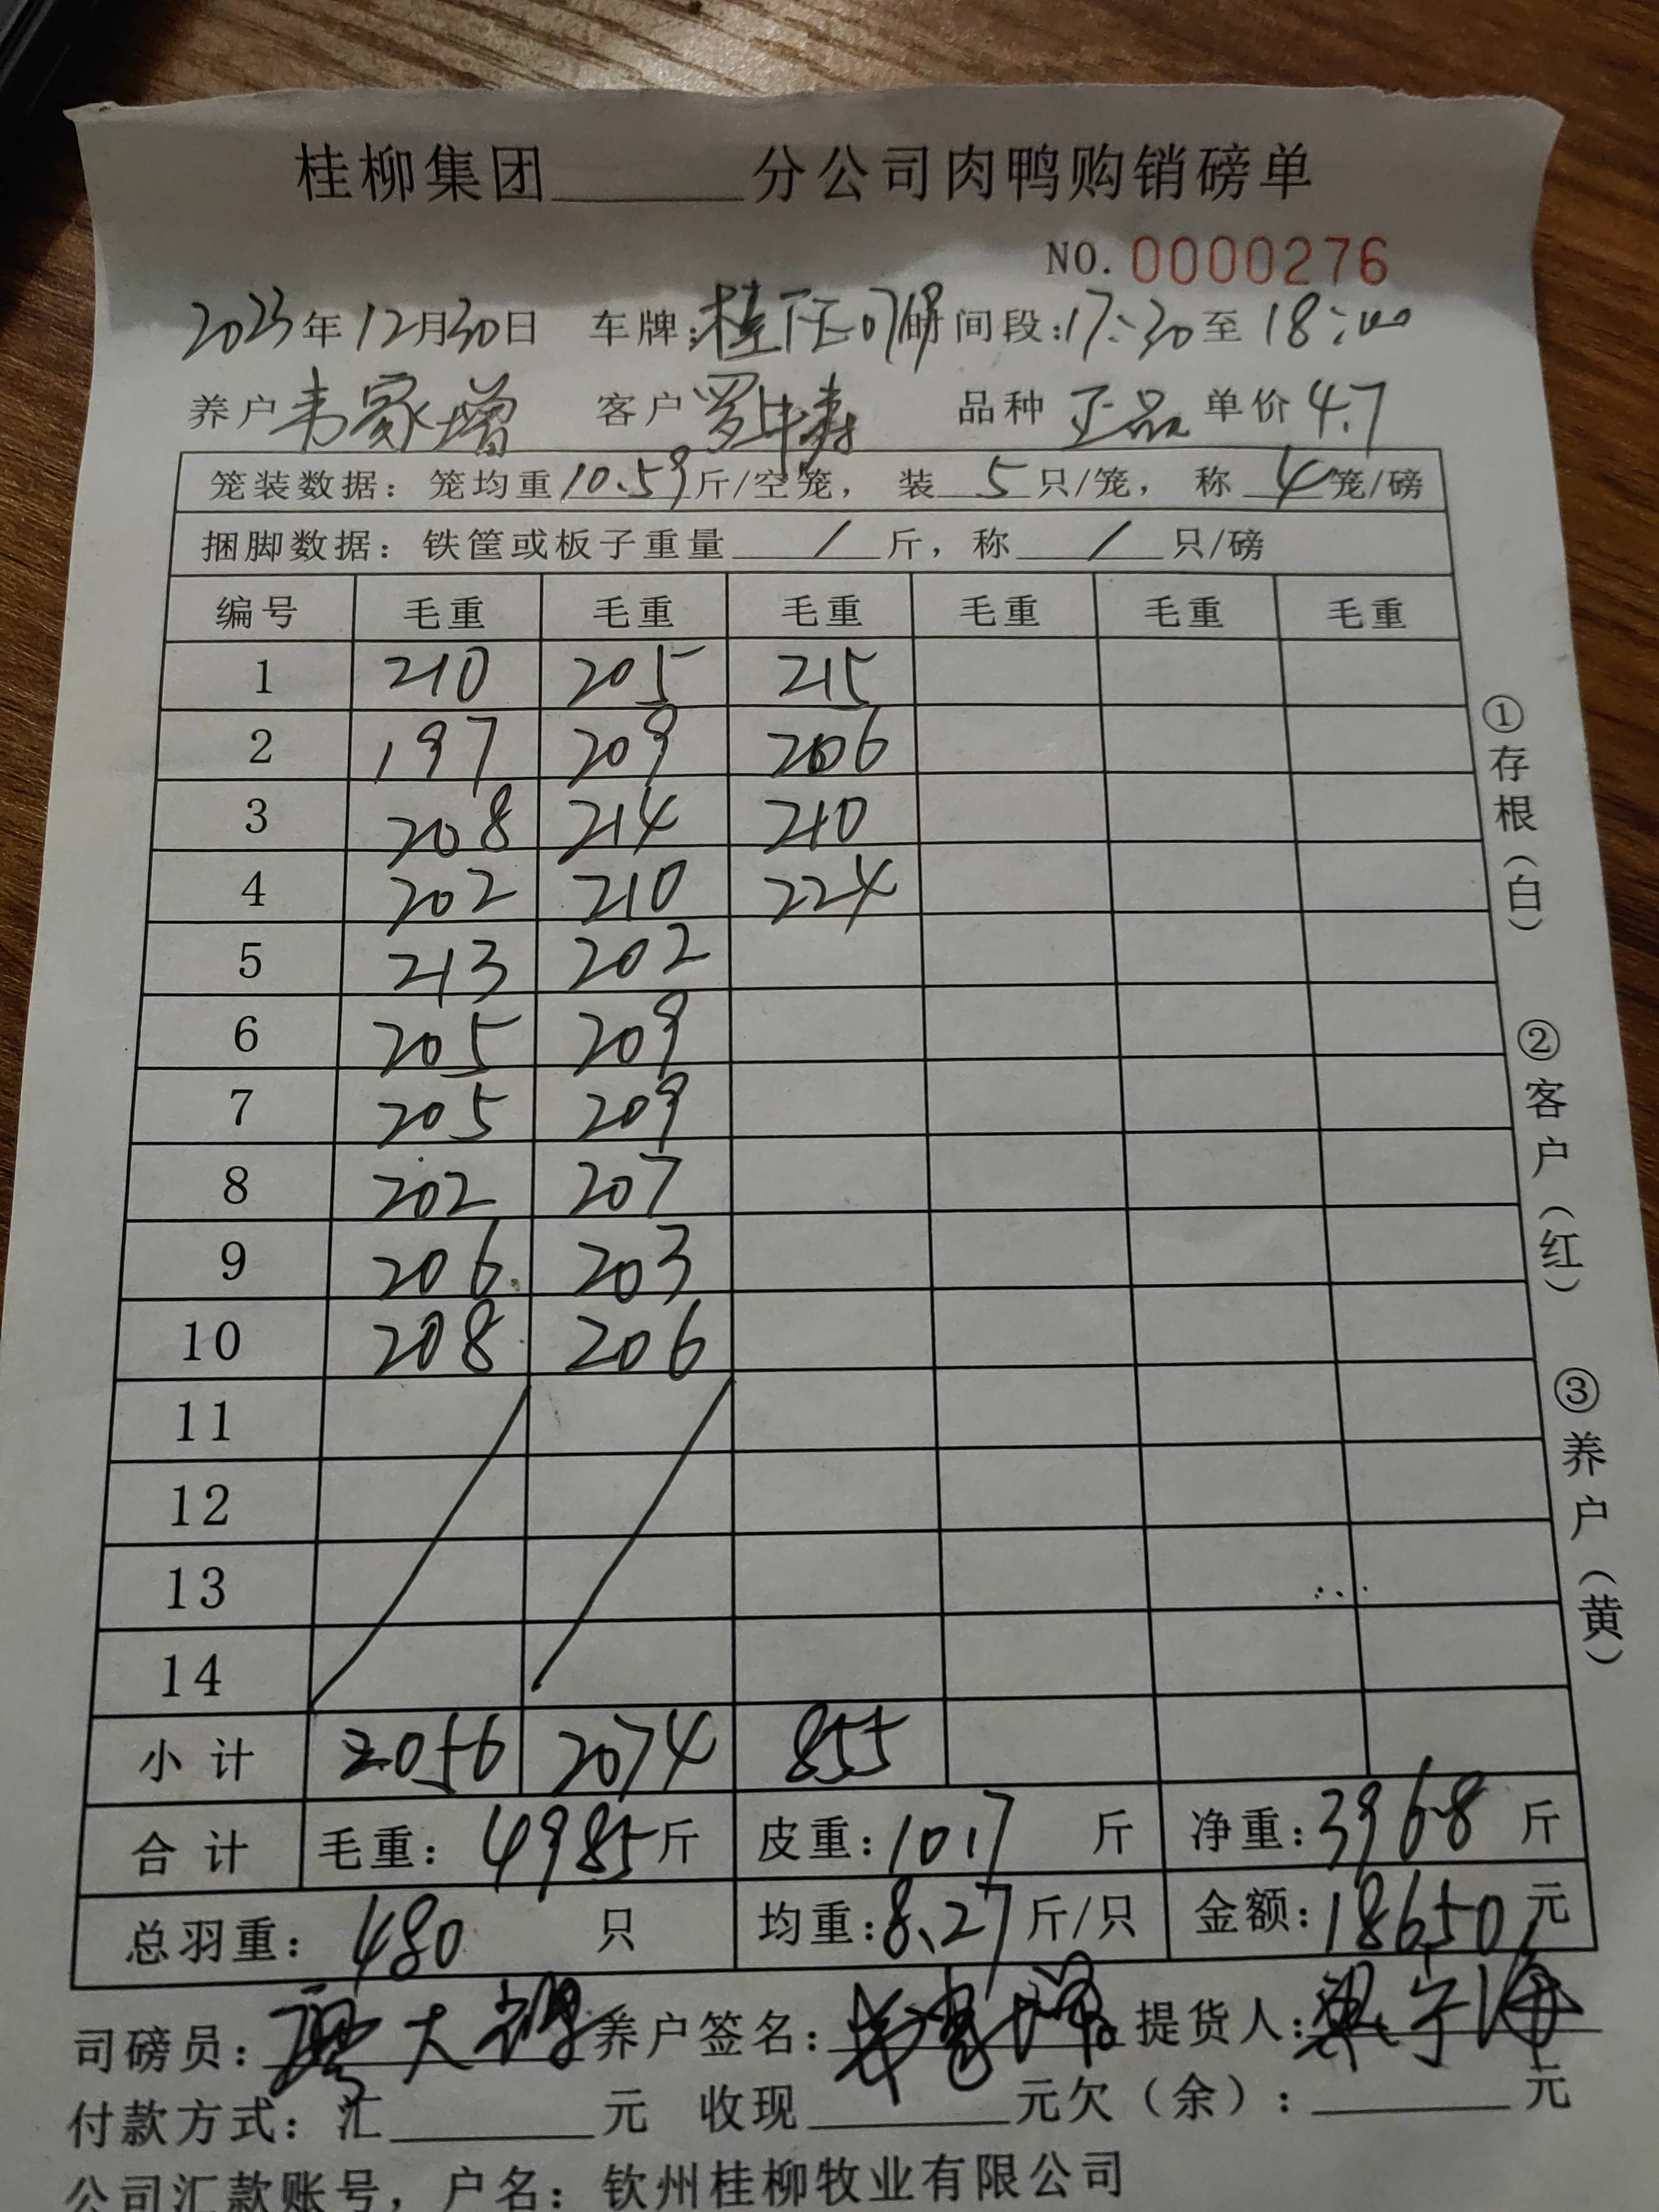 桂柳集团______分公司肉鸭购销磅单
NO. 0000276
2023年12月30日 车牌: 时间段:17:30至18:00
养户韦家增 客户罗 品种 正品 单价4.7
笼装数据: 笼均重10.59斤/空笼, 装 5 只/笼, 称 4 笼/磅
捆脚数据: 铁筐或板子重量 / 斤, 称 / 只/磅
编号 毛重 毛重 毛重 毛重 毛重 毛重
1 210 205 215
2 197 209 206
3 208 214 210
4 202 210 224
5 213 202
6 205 209
7 205 209
8 202 207
9 206 203
10 208 206
11
12
13
14
小计 2056 2074 855
合计 毛重: 4985斤 皮重: 1017 斤 净重: 3968 斤
总羽重: 480 只 均重: 8.27斤/只 金额: 18650元
司磅员: 养户签名: 提货人:
付款方式: 汇______元 收现______元欠(余): ______元
公司汇款账号, 户名: 钦州桂柳牧业有限公司
①存根(白) ②客户(红) ③养户(黄)